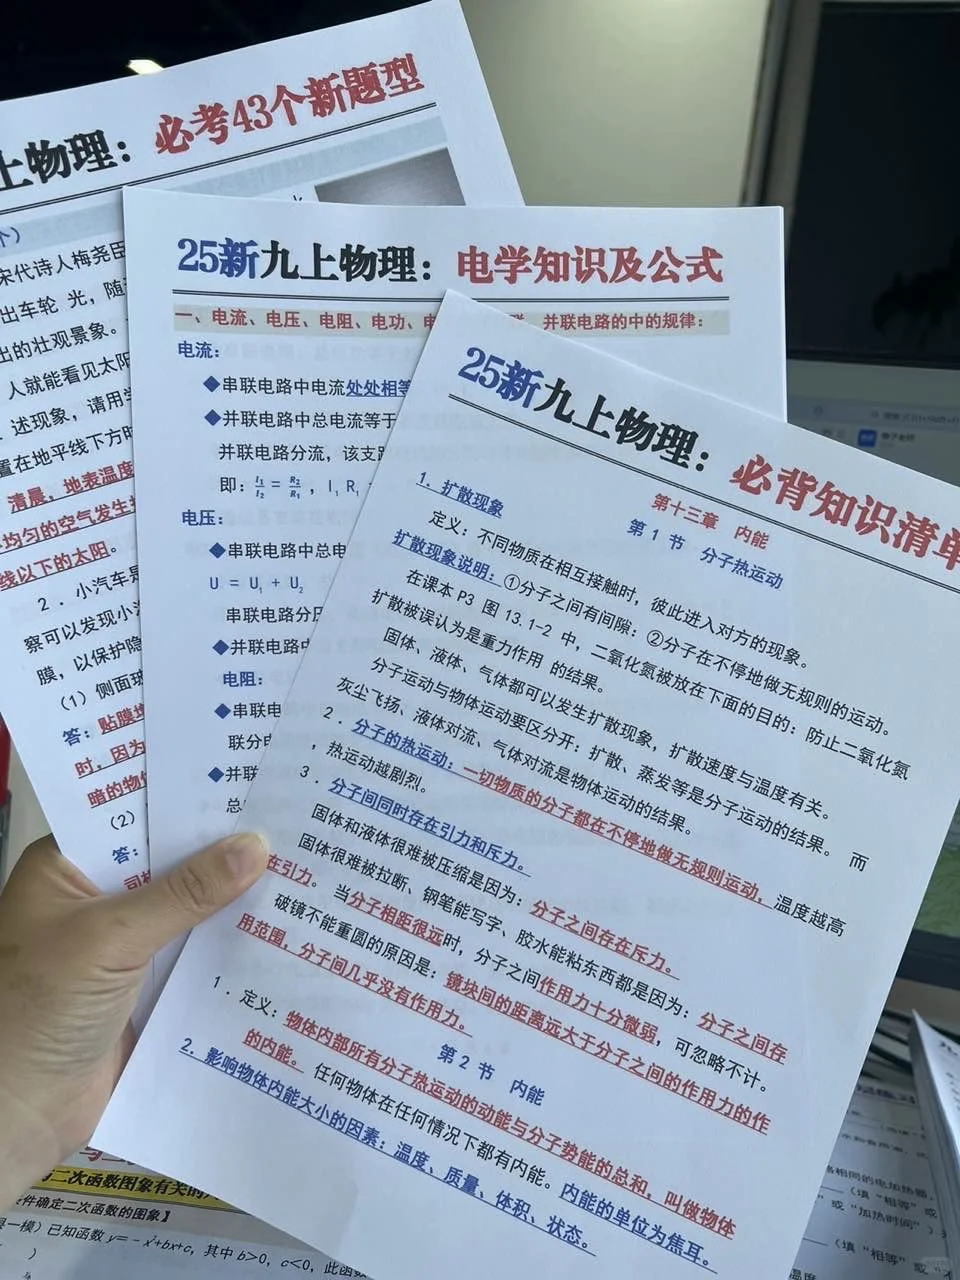 上物理：必考43个新题型
个）
宋代诗人梅尧臣
出车轮 光，随
出的壮观景象。
人就能看见太阳
述现象，请用学
置在地平线下方时
清晨，地表温度
均匀的空气发生折
线以下的太阳。
2．小汽车是
察可以发现小汽
膜，以保护隐
（1）侧面玻
答：贴膜增
时，因为
暗的物体
（2）
答：
司机
25新九上物理：电学知识及公式
一、电流、电压、电阻、电功、电 联、并联电路的中的规律：
电流：
◆串联电路中电流处处相等
◆并联电路中总电流等于
并联电路分流，该支路
即：I₁/I₂ = R₂/R₁ ，I₁R₁
电压：
◆串联电路中总电
U = U₁ + U₂
串联电路分压
◆并联电路中
电阻：
◆串联电
联分电
◆并联
总
25新九上物理：必背知识清单
第十三章 内能
第 1 节 分子热运动
1．扩散现象
定义：不同物质在相互接触时，彼此进入对方的现象。
扩散现象说明：①分子之间有间隙；②分子在不停地做无规则的运动。
在课本 P3 图 13.1-2 中，二氧化氮被放在下面的目的：防止二氧化氮
扩散被误认为是重力作用 的结果。
固体、液体、气体都可以发生扩散现象，扩散速度与温度有关。
分子运动与物体运动要区分开：扩散、蒸发等是分子运动的结果。 而
灰尘飞扬、液体对流、气体对流是物体运动的结果。
2．分子的热运动：一切物质的分子都在不停地做无规则运动，温度越高
，热运动越剧烈。
3．分子间同时存在引力和斥力。
固体和液体很难被压缩是因为：分子之间存在斥力。
固体很难被拉断、钢笔能写字、胶水能粘东西都是因为：分子之间存
在引力。 当分子相距很远时，分子之间作用力十分微弱，可忽略不计。
破镜不能重圆的原因是：镜块间的距离远大于分子之间的作用力的作
用范围，分子间几乎没有作用力。
第 2 节 内能
1．定义：物体内部所有分子热运动的动能与分子势能的总和，叫做物体
的内能。 任何物体在任何情况下都有内能。内能的单位为焦耳。
2．影响物体内能大小的因素：温度、质量、体积、状态。
二次函数图象有关的
件确定二次函数的图象】
一模）已知函数 y＝－x²+bx+c，其中 b＞0，c＜0，此函
）
相同的电加热器，
（填“相等”或
或“加热时间”）
（填“相等”或